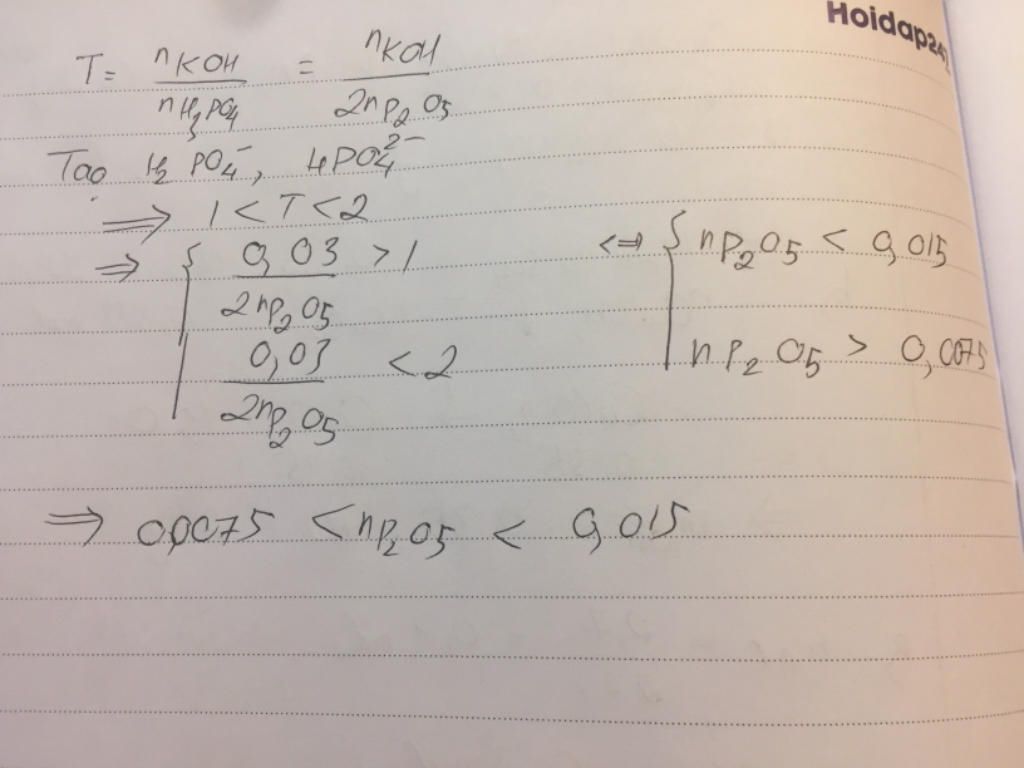 Hoidap247
T = nKOH / nH₃PO₄ = nKOH / 2nP₂O₅
Tạo H₂PO₄⁻, HPO₄²⁻
⇒ 1 < T < 2
⇒ { 0,03 / 2nP₂O₅ > 1 ⇔ { nP₂O₅ < 0,015
0,03 / 2nP₂O₅ < 2 nP₂O₅ > 0,0075
⇒ 0,0075 < nP₂O₅ < 0,015